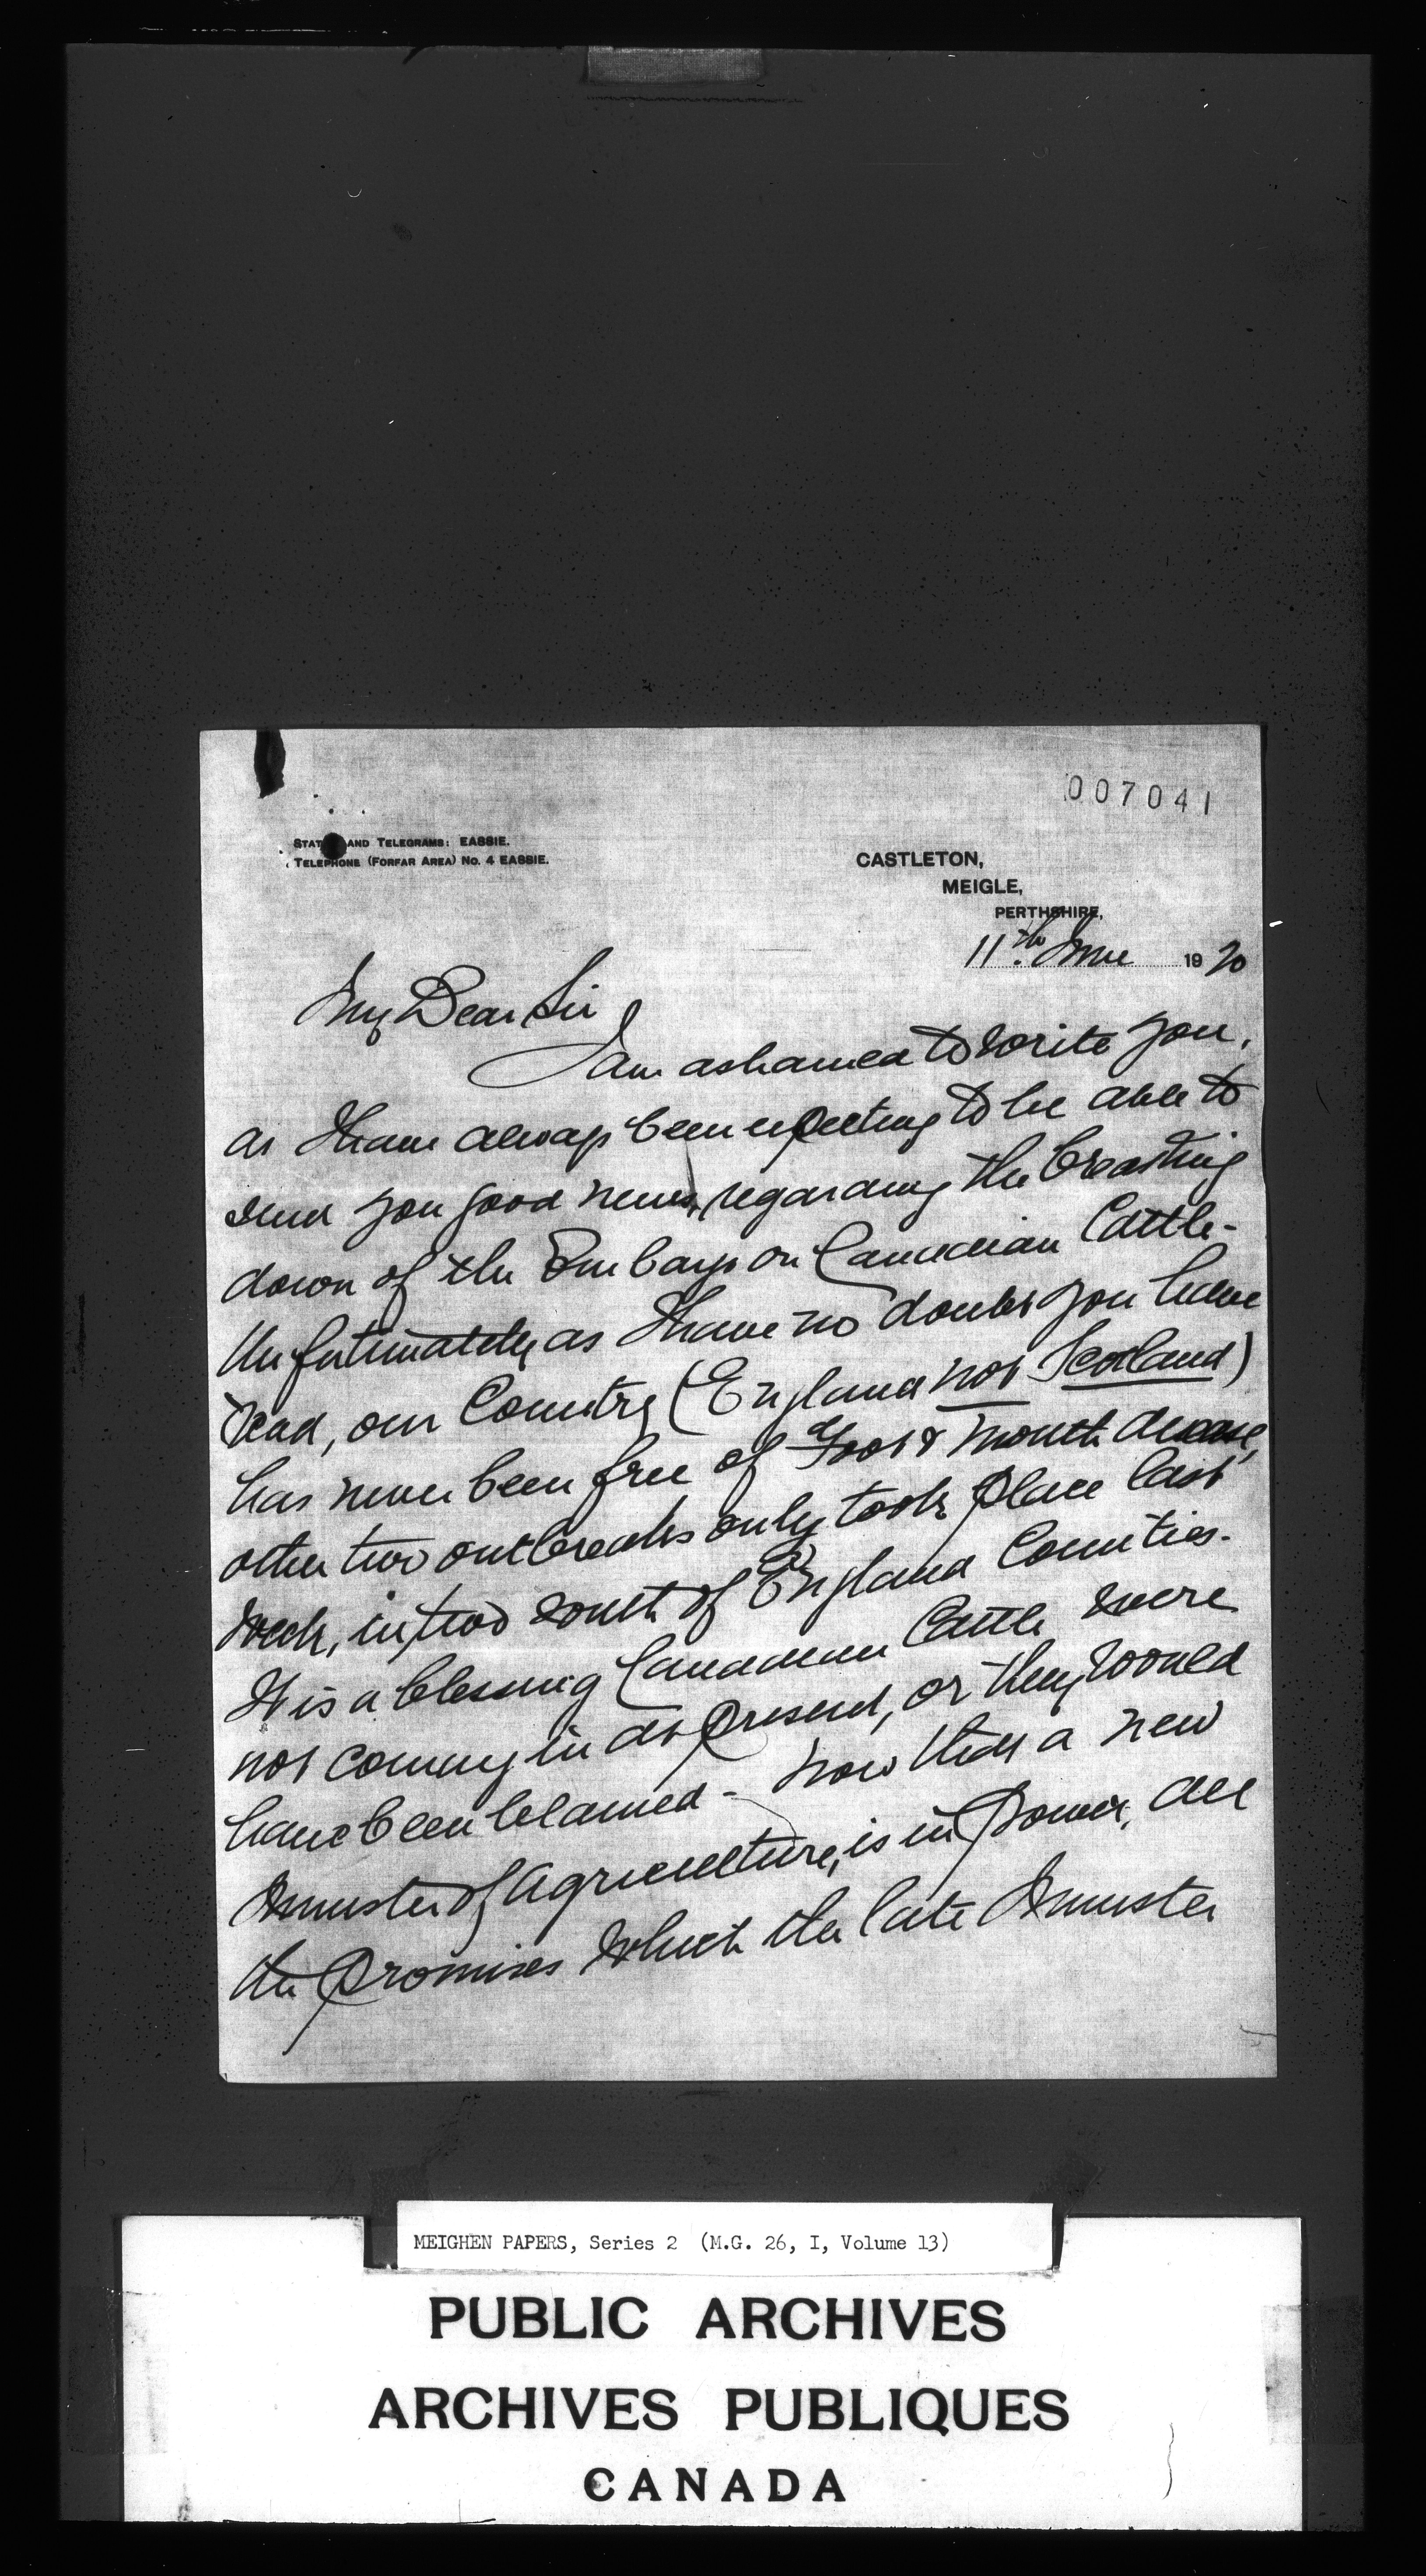 007041
STAT AND TELEGRAMS: EASSIE.
TELEPHONE (FORFAR AREA) No. 4 EASSIE.
CASTLETON,
MEIGLE,
PERTHSHIRE,
11th June 1920
My Dear Sir
I am ashamed to write you,
as I have always been expecting to be able to
send you good news, regarding the breaking
down of the Embargo on Canadian Cattle-
Unfortunately as I have no doubt you have
read, our Country (England not Scotland)
has never been free of Foot & mouth disease,
other two outbreaks only took place last
week, in two South of England Counties.
It is a blessing Canadian Cattle were
not coming in at present, or they would
have been blamed - now that a new
Minister of Agriculture, is in power, all
the promises which the late Minister
MEIGHEN PAPERS, Series 2 (M.G. 26, I, Volume 13)
PUBLIC ARCHIVES
ARCHIVES PUBLIQUES
CANADA